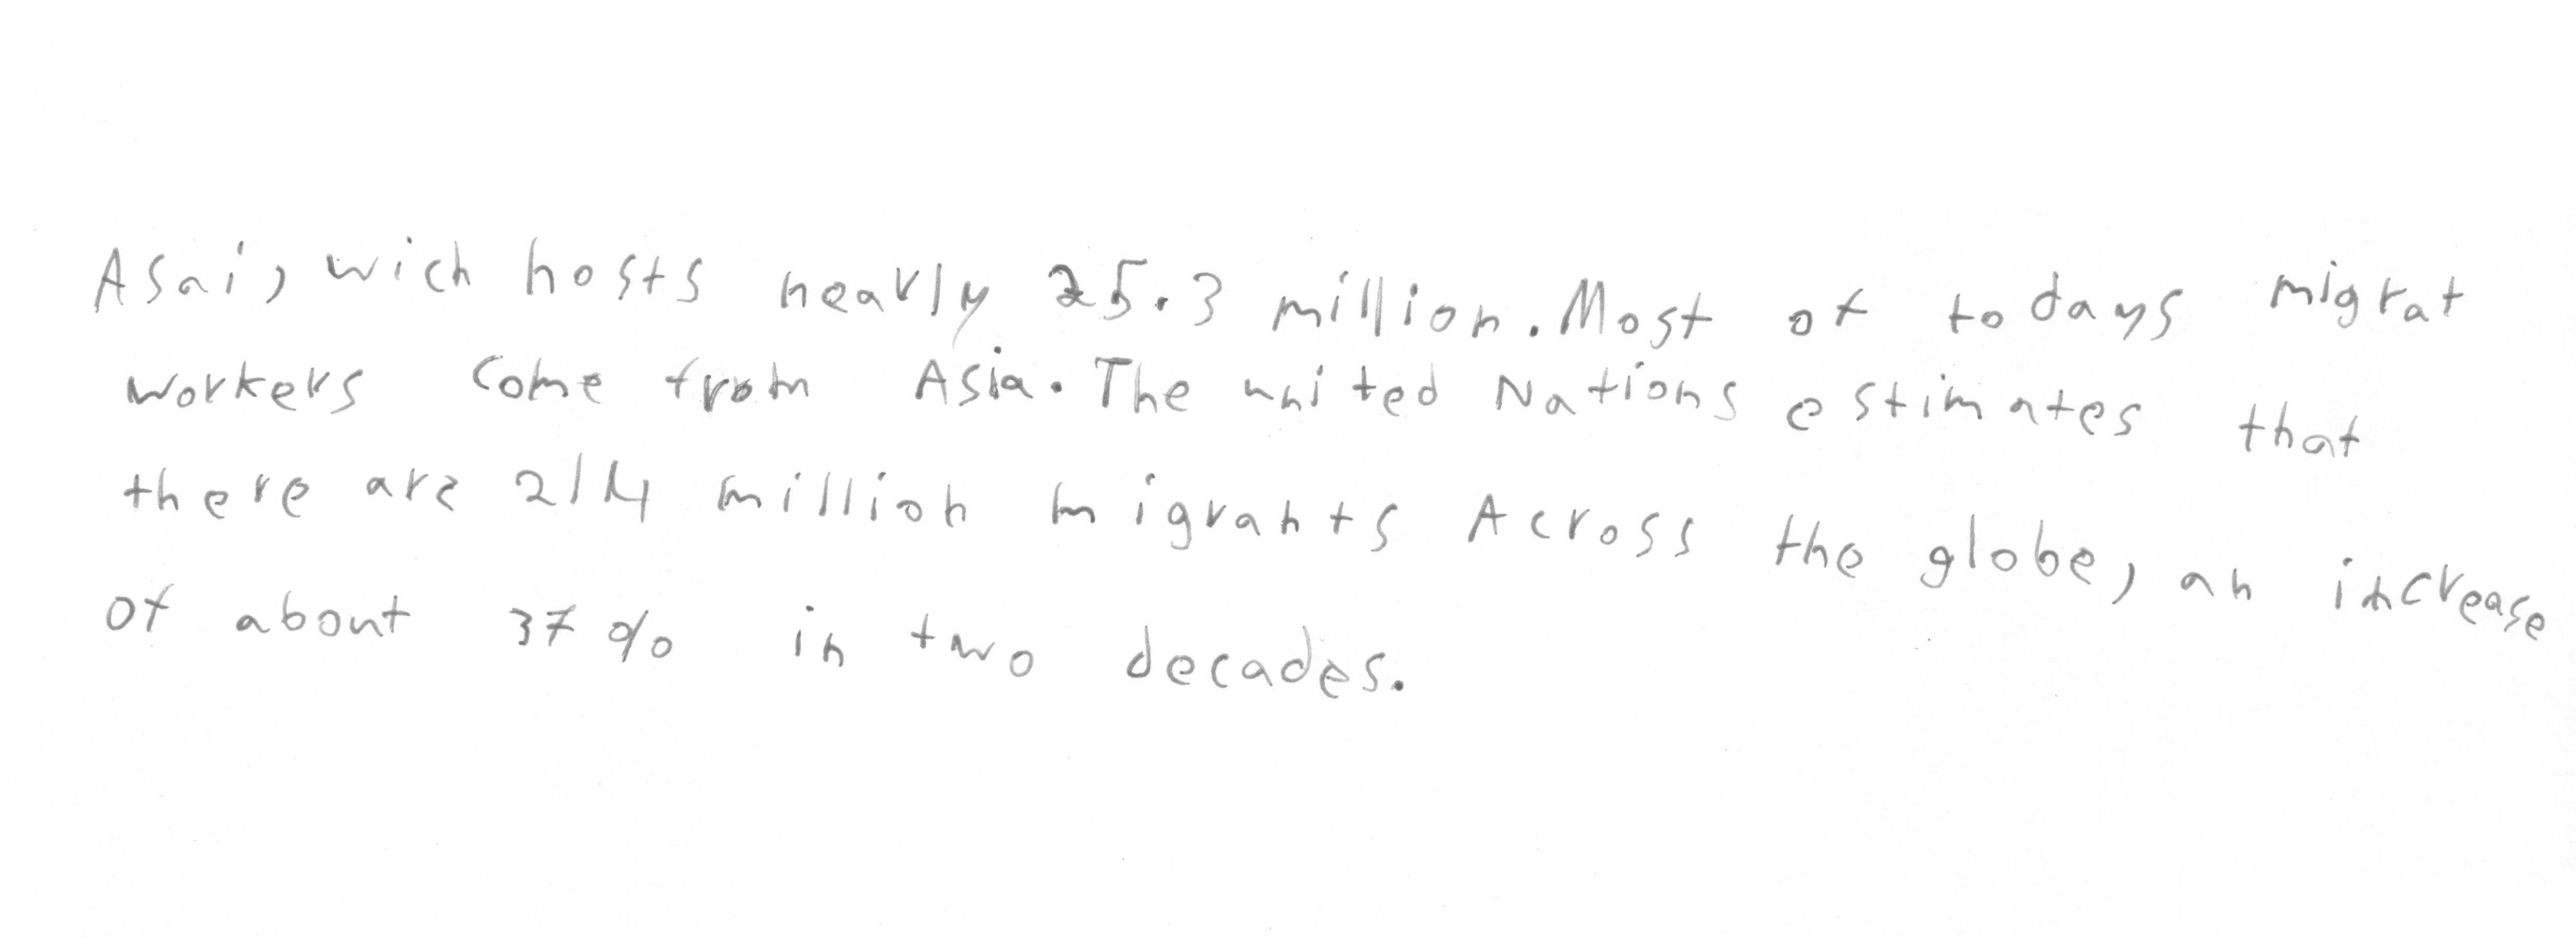 Asai, wich hosts nearly 25.3 million. Most of todays migrat
workers come from Asia. The united Nations estimates that
there are 214 million migrants Across the globe, an increase
of about 37% in two decades.